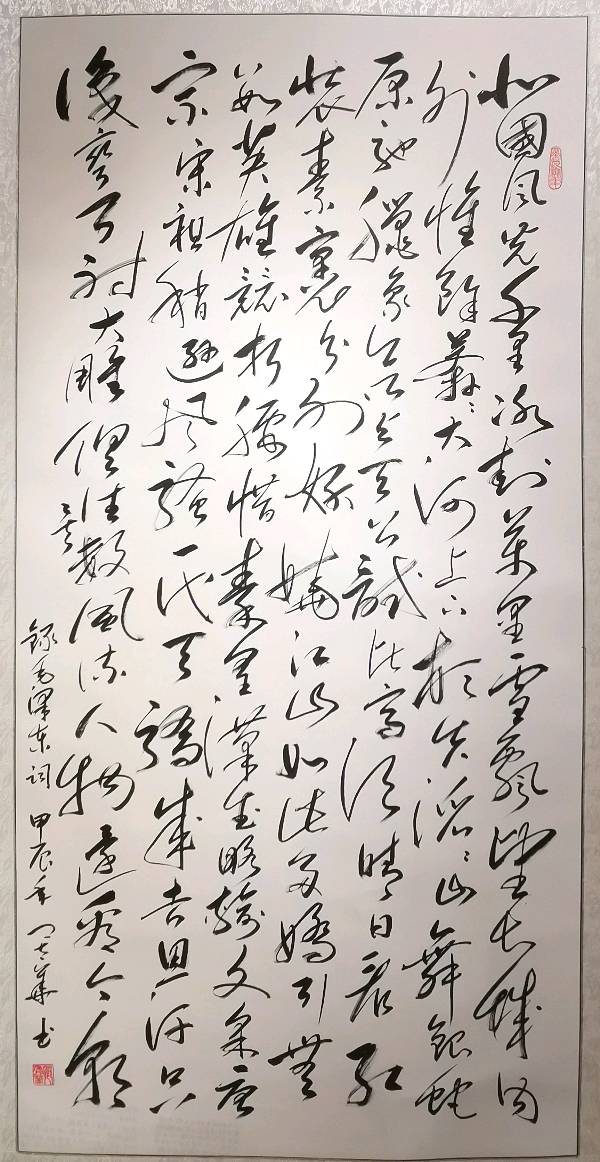 北國風光千里冰封萬里雪飄望長城內
外惟餘莽〻大河上下頓失滔〻山舞銀蛇
原馳臘象欲與天公試比高須晴日看紅
裝素裹分外妖嬈江山如此多嬌引無
數英雄競折腰惜秦皇漢武略輸文采唐
宗宋祖稍遜風騷一代天驕成吉思汗只
識彎弓射大雕俱往矣數風流人物還看今朝
錄毛澤東詞 甲辰年 華書